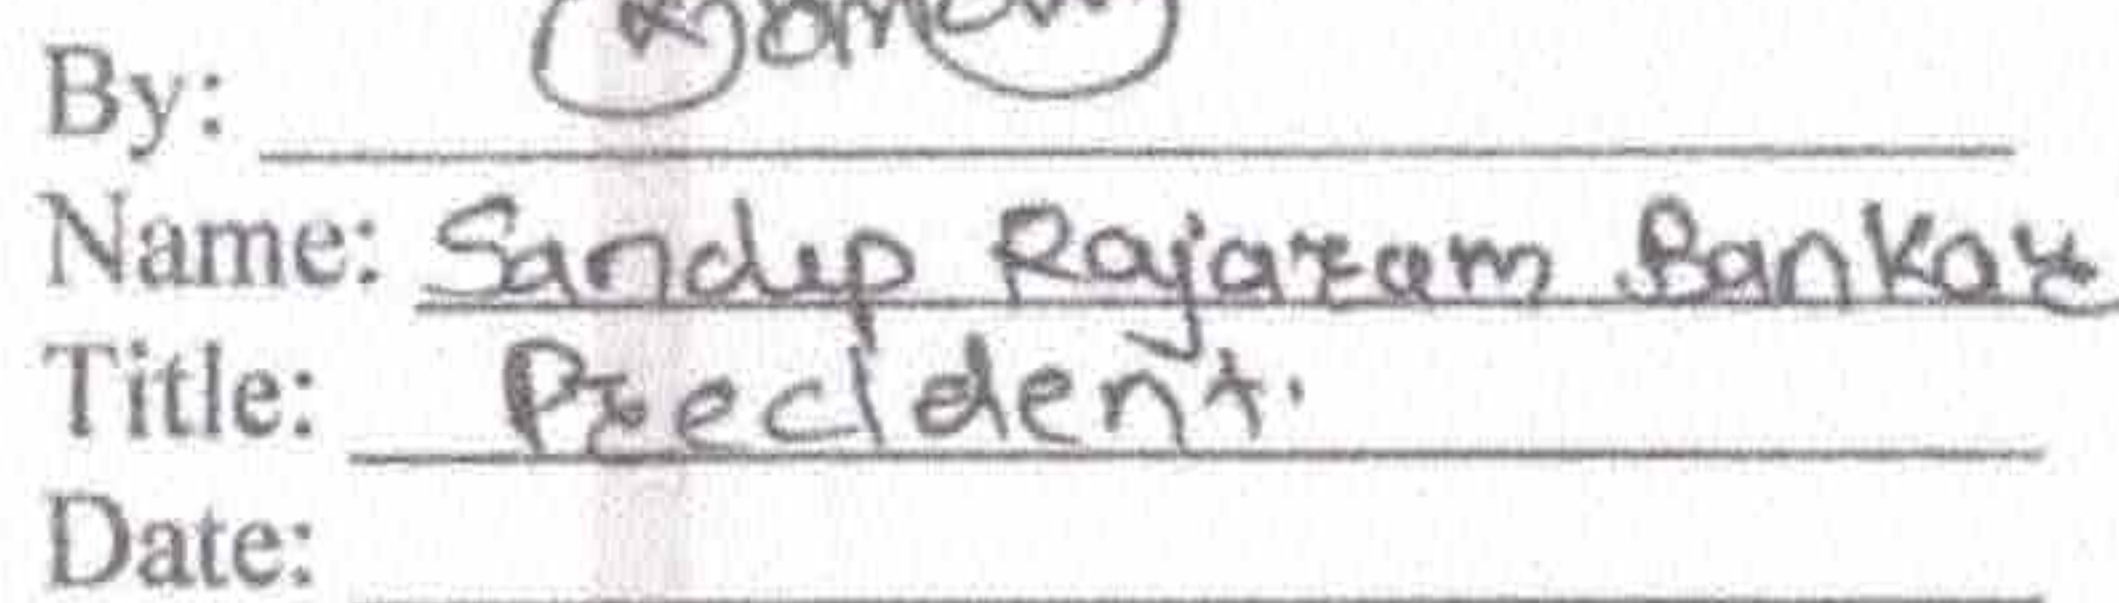 By:
Name: Sandip Rajaram Bankar
Title: Precident.
Date: